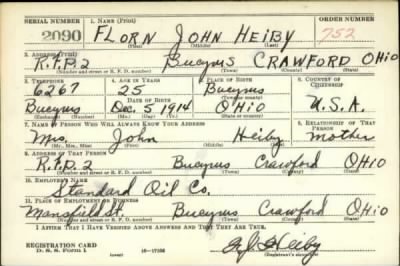 SERIAL NUMBER 1. NAME (Print) ORDER NUMBER
2090 FLORN JOHN HEIBY 752
(First) (Middle) (Last)
2. ADDRESS (Print)
R.F.D.2 Bucyrus CRAWFORD OHIO
(Number and street or R. F. D. number) (Town) (County) (State)
3. TELEPHONE 4. AGE IN YEARS 5. PLACE OF BIRTH 6. COUNTRY OF CITIZENSHIP
6267 25 Bucyrus
DATE OF BIRTH (Town or county)
Bucyrus Dec. 5 1914 OHIO U.S.A.
(Exchange) (Number) (Mo.) (Day) (Yr.) (State or country)
7. NAME OF PERSON WHO WILL ALWAYS KNOW YOUR ADDRESS 8. RELATIONSHIP OF THAT PERSON
Mrs. John Heiby Mother
(Mr., Mrs., Miss) (First) (Middle) (Last)
9. ADDRESS OF THAT PERSON
R.F.D.2 Bucyrus Crawford OHIO
(Number and street or R. F. D. number) (Town) (County) (State)
10. EMPLOYER'S NAME
Standard Oil Co.
11. PLACE OF EMPLOYMENT OR BUSINESS
Mansfield St. Bucyrus Crawford OHIO
(Number and street or R. F. D. number) (Town) (County) (State)
I AFFIRM THAT I HAVE VERIFIED ABOVE ANSWERS AND THAT THEY ARE TRUE.
REGISTRATION CARD
D. S. S. Form 1 (over) 16—17105 Heiby
(Registrant's signature)